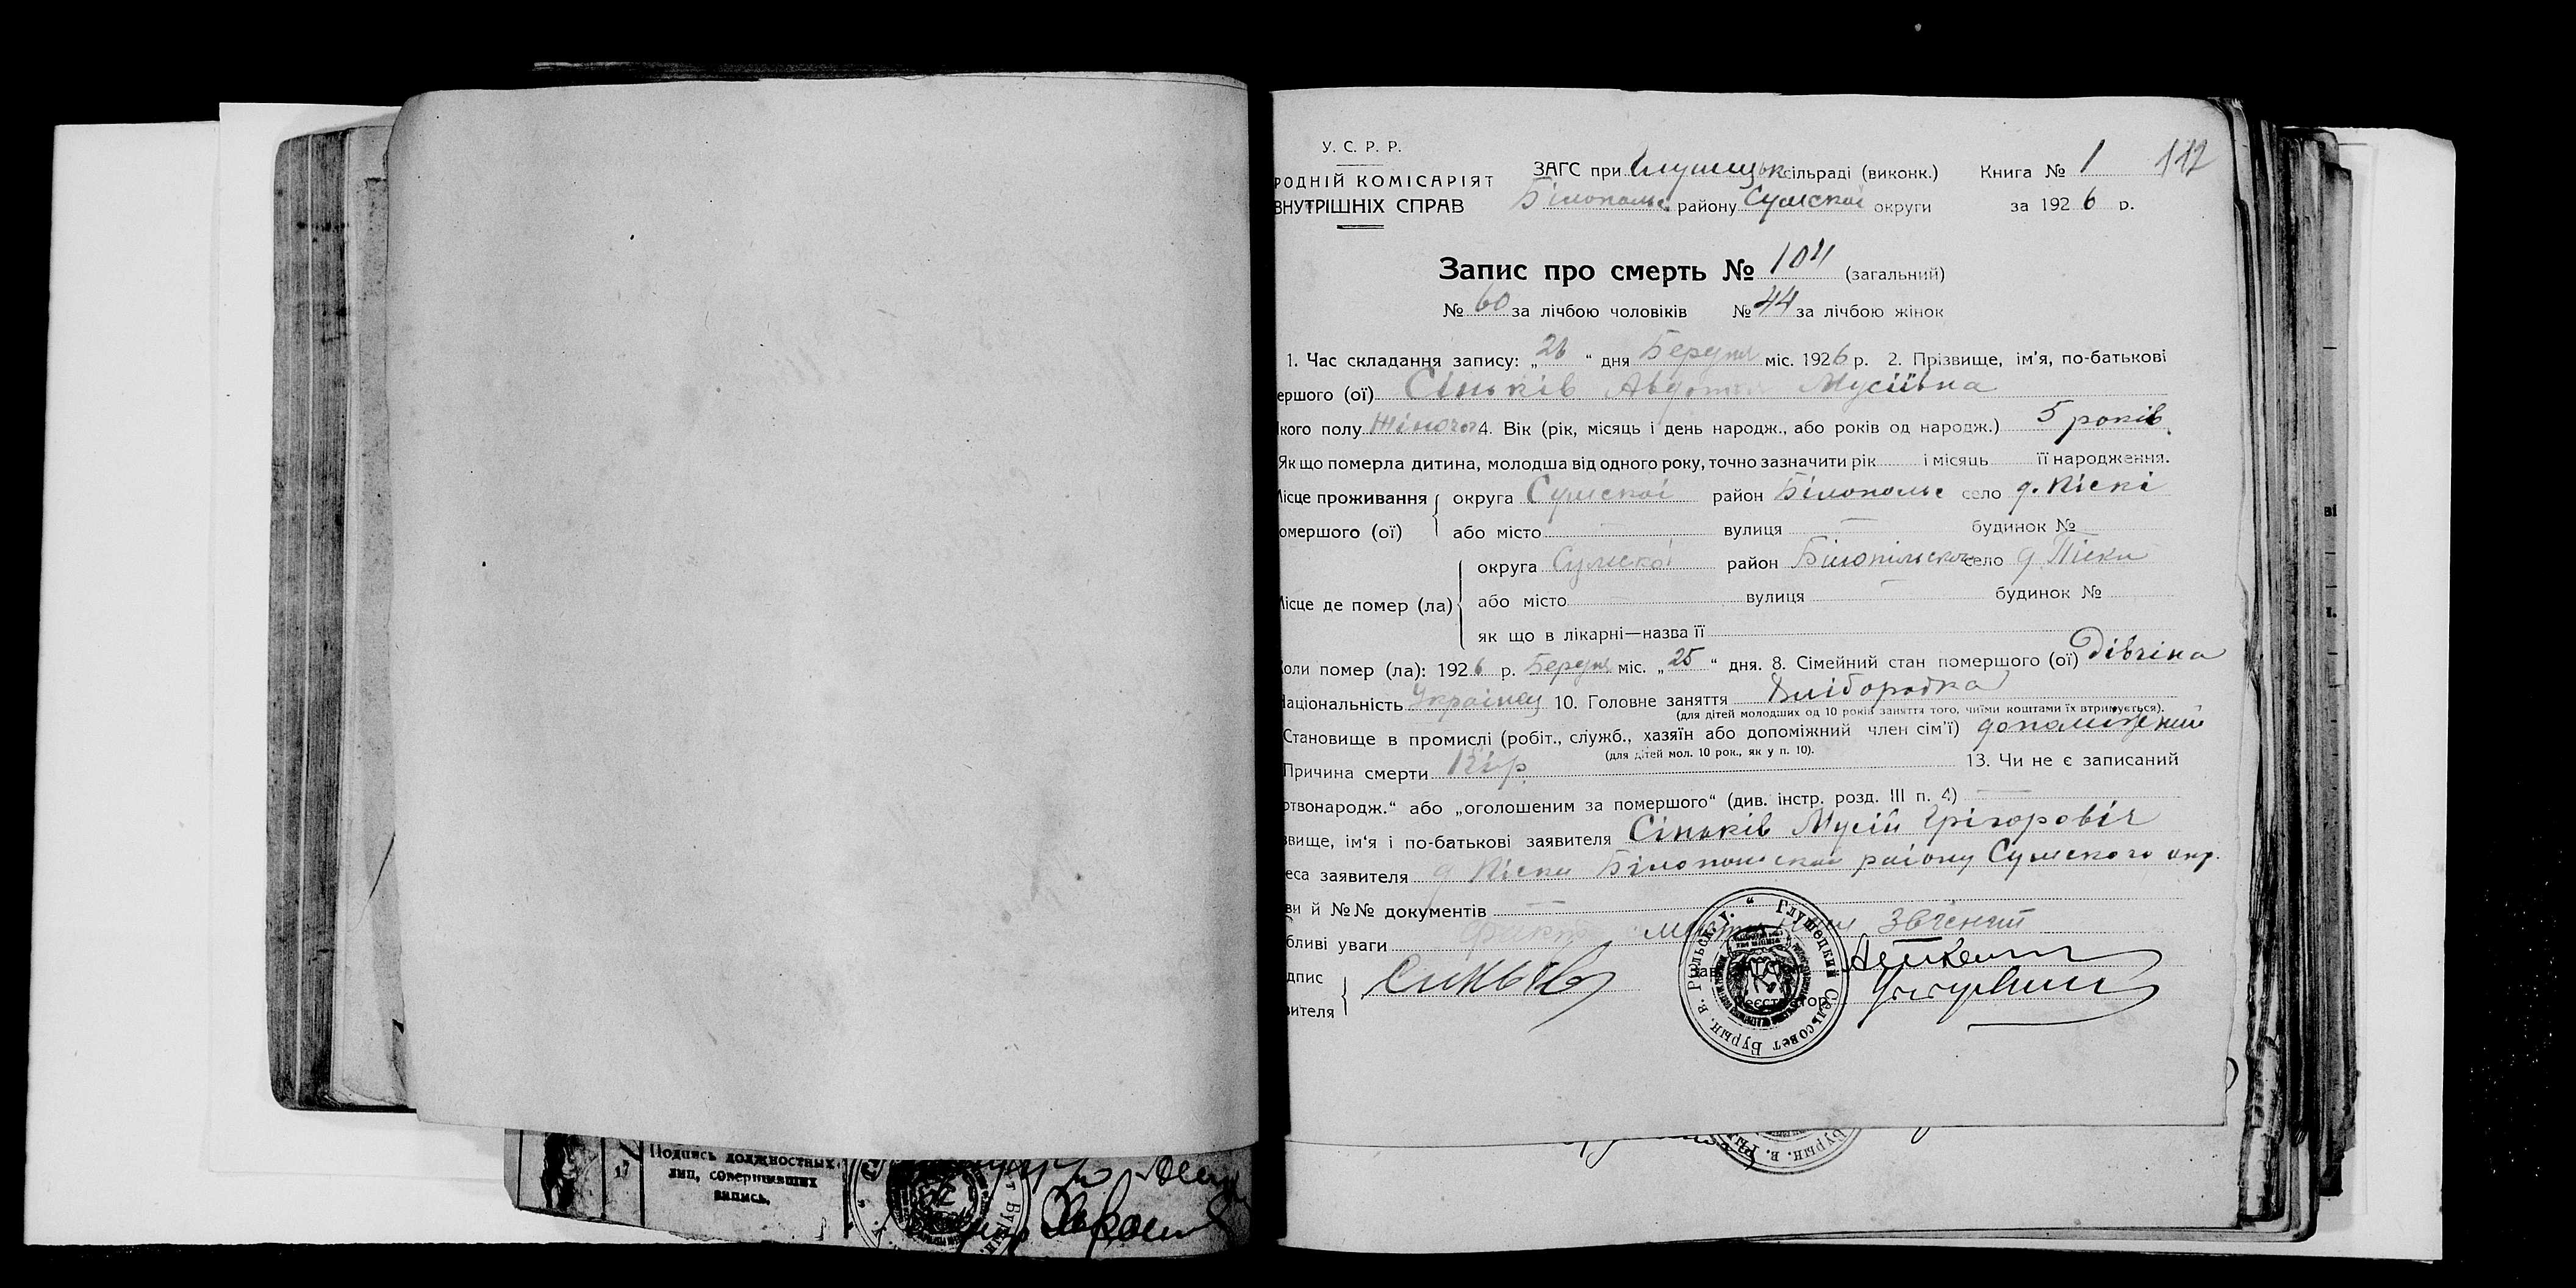 У. С. Р. Р.
РОДНІЙ КОМІСАРІЯТ
ВНУТРІШНІХ СПРАВ
ЗАГС при Глушецьк сільраді (виконк.) Книга № 1 112
Білопольс району Сумской округи за 1926 р.
Запис про смерть № 104 (загальний)
№ 60 за лічбою чоловіків № 44 за лічбою жінок
1. Час складання запису: „26“ дня Березня міс. 1926 р. 2. Прізвище, ім’я, по-батькові
ершого (ої) Сіньків Авдотья Мусіївна
кого полу Жіночог 4. Вік (рік, місяць і день народж., або років од народж.) 5 років.
Як що померла дитина, молодша від одного року, точно зазначити рік і місяць її народження.
Місце проживання округа Сумскоі район Білопольс село д. Піскі
омершого (ої) або місто вулиця будинок №
округа Сумскоі район Білопільског село д Піски
Місце де помер (ла) або місто вулиця будинок №
як що в лікарні—назва її
Коли помер (ла): 1926 р. Березня міс. „25“ дня. 8. Сімейний стан помершого (ої) дівчіна
Національність Українец 10. Головне заняття Хліборобка
(для дітей молодших од 10 років заняття того, чиїми коштами їх втримується).
Становище в промислі (робіт., служб., хазяїн або допоміжний член сім’ї) допоміжний
(для дітей мол. 10 рок., як у п. 10).
Причина смерти Кір 13. Чи не є записаний
ртвонародж.“ або „оголошеним за помершого“ (див. інстр. розд. III п. 4)
звище, ім’я і по-батькові заявителя Сіньків Мусій Грігоровіч
еса заявителя д Піски Білопольской району Сумского окр.
ви й №№ документів
бливі уваги факт смерти звірений
дпис
вителя
Синьков
Реєстратор
Глушецкий Сельсовет Бурын. в. Рыльск. у.
Подпись должностных
лиц, совершивших
запись.
17